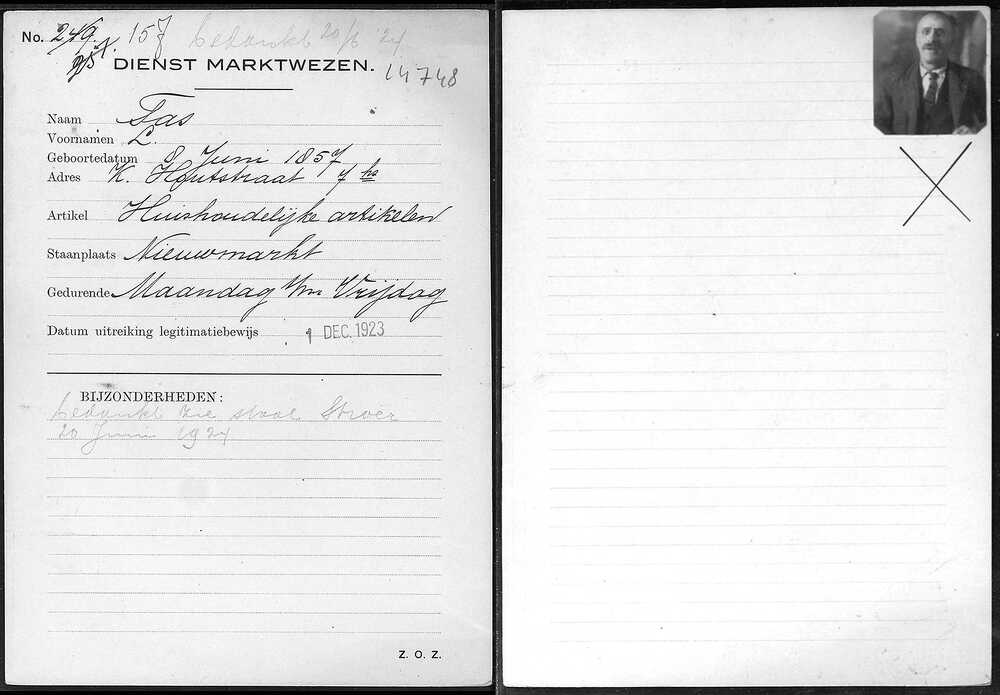 No. 249. 157 bedankt 20/6 '24
DIENST MARKTWEZEN. 14748
Naam Tas
Voornamen L.
Geboortedatum 8 Juni 1857
Adres K. Houtstraat 7 hs
Artikel Huishoudelijke artikelen
Staanplaats Nieuwmarkt
Gedurende Maandag t/m Vrijdag
Datum uitreiking legitimatiebewijs 1 DEC. 1923
BIJZONDERHEDEN:
bedankt zie staat
20 Juni 1924
Z. O. Z.